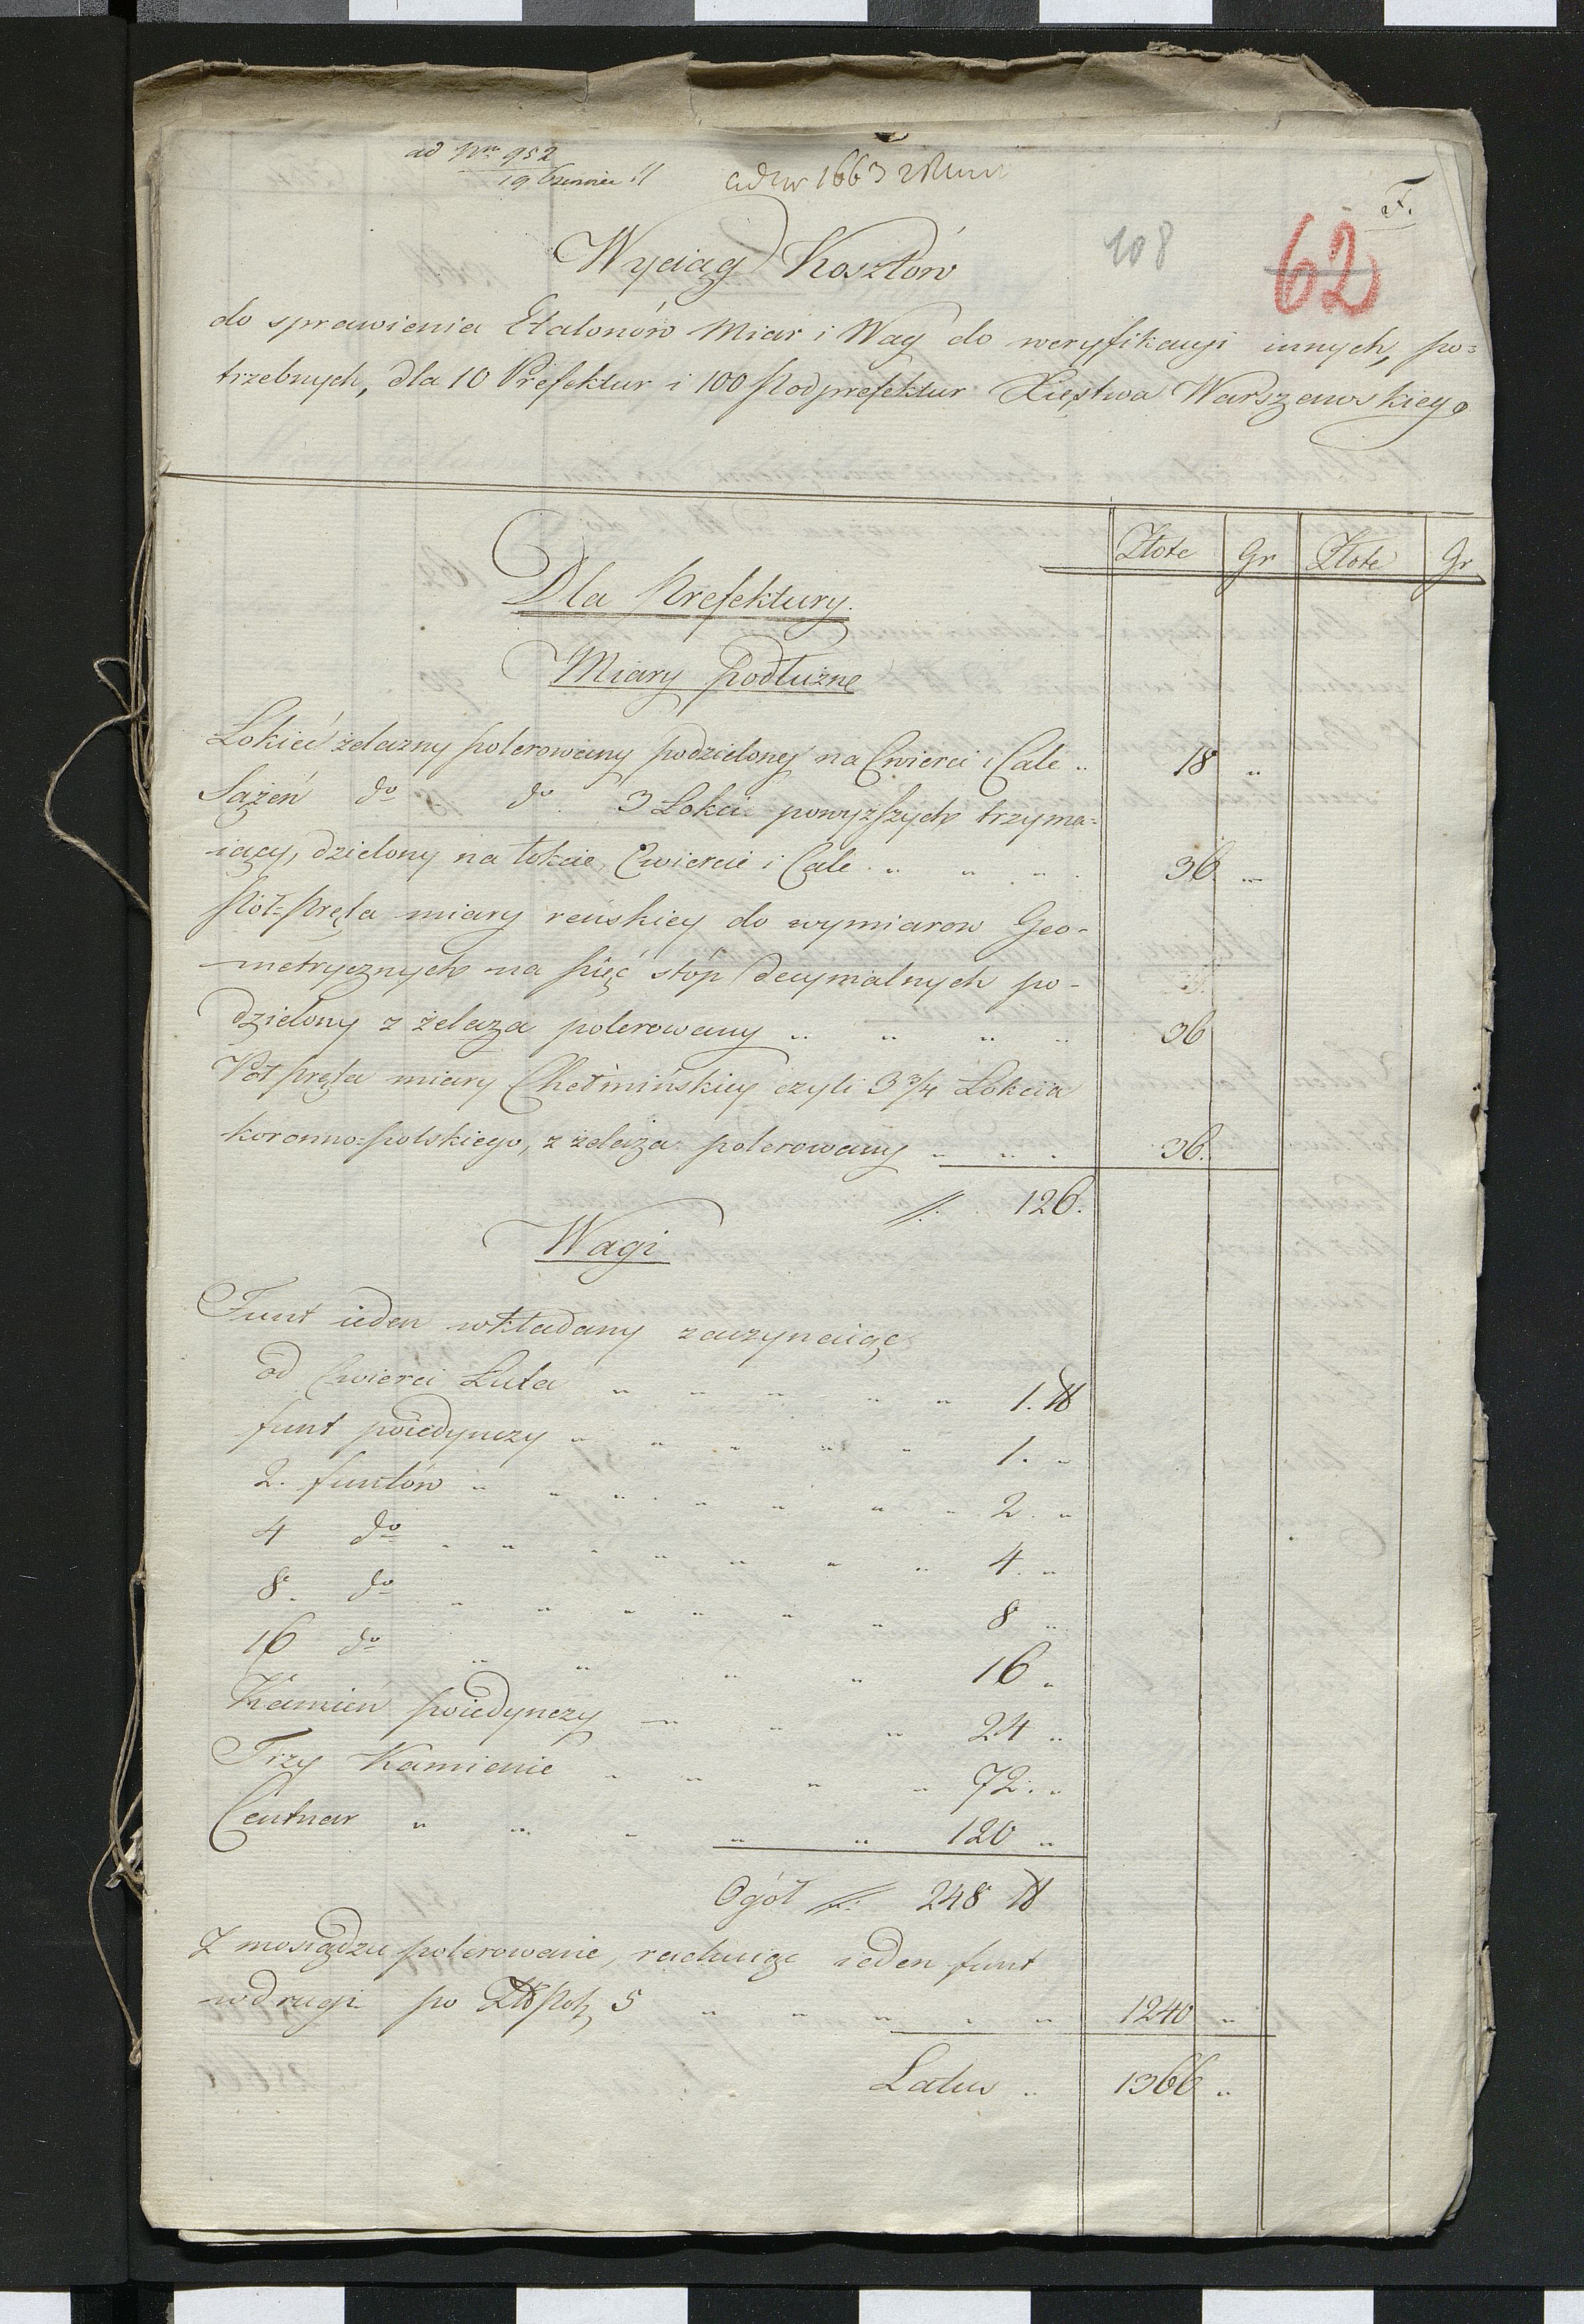 ad Nrm 952
19 Czerwca 11
ad Nr 1663
F.
108
62
Wyciąg Kosztów
do sprawienia Etalonów Miar i Wag do weryfikacyi innych, po=
trzebnych, dla 10 Prefektur i 100 Podprefektur Xięstwa Warszawskiego
Złote Gr Złote Gr
Dla Prefektury.
Miary Podłużne
Łokieć żelazny polerowany podzielony na Cwierci i Cale .. 18 "
Sążeń do do 3 Łokci powyższych trzyma=
iący, dzielony na łokcie, Cwiercie i Cale " " " 36 "
Pół=Pręta miary reńskiey do wymiarow Geo=
metrycznych na pięć stóp decymalnych po=
dzielony z żelaza polerowany " " " " 36
Pół pręta miary Chełmińskiey czyli 3 3/4 Łokcia
koronno=polskiego, z żelaza polerowany " " " 36.
//: 126.
Wagi
Funt ieden wkładany zaczynaiąc
od Cwierci Łuta " " " " " 1. ℔
funt poiedynczy " " " " " 1. "
2. funtów " " " " " " " 2. "
4 do " " " " " " " 4. "
8. do " " " " " " 8 "
16 do " " " " 16 "
Kamień poiedynczy " " " 24 "
Trzy Kamienie " " " " 72. "
Centnar " " " " " 120 "
Ogół //: 248 ℔
Z mosiądzu polerowane, rachuiąc ieden funt
w drugi po Zł Pol. 5 " " " " " 1240 "
Latus " 1366 "